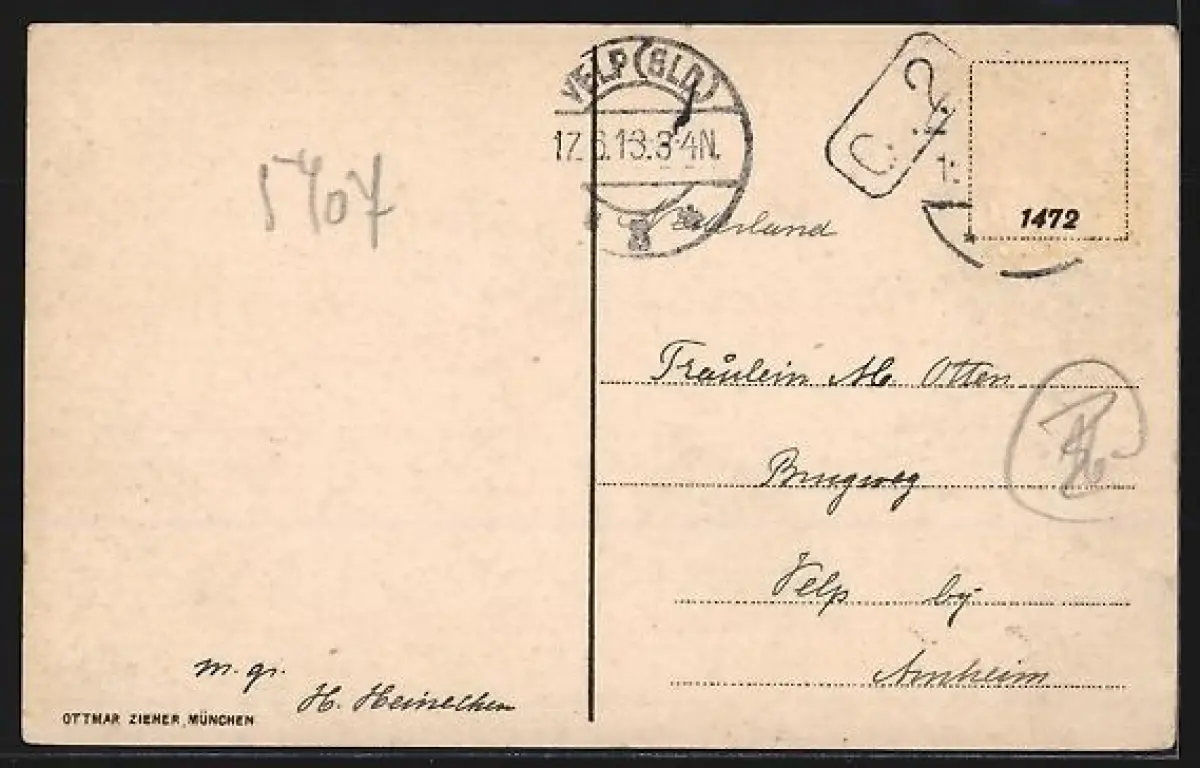 VELP (GLD)
17.6.13.3-4N.
1472
5407
Nederland
Fräulein M Otten
Brugweg
Velp by
Arnheim
m. gr.
H. Heinecken
OTTMAR ZIEHER, MÜNCHEN